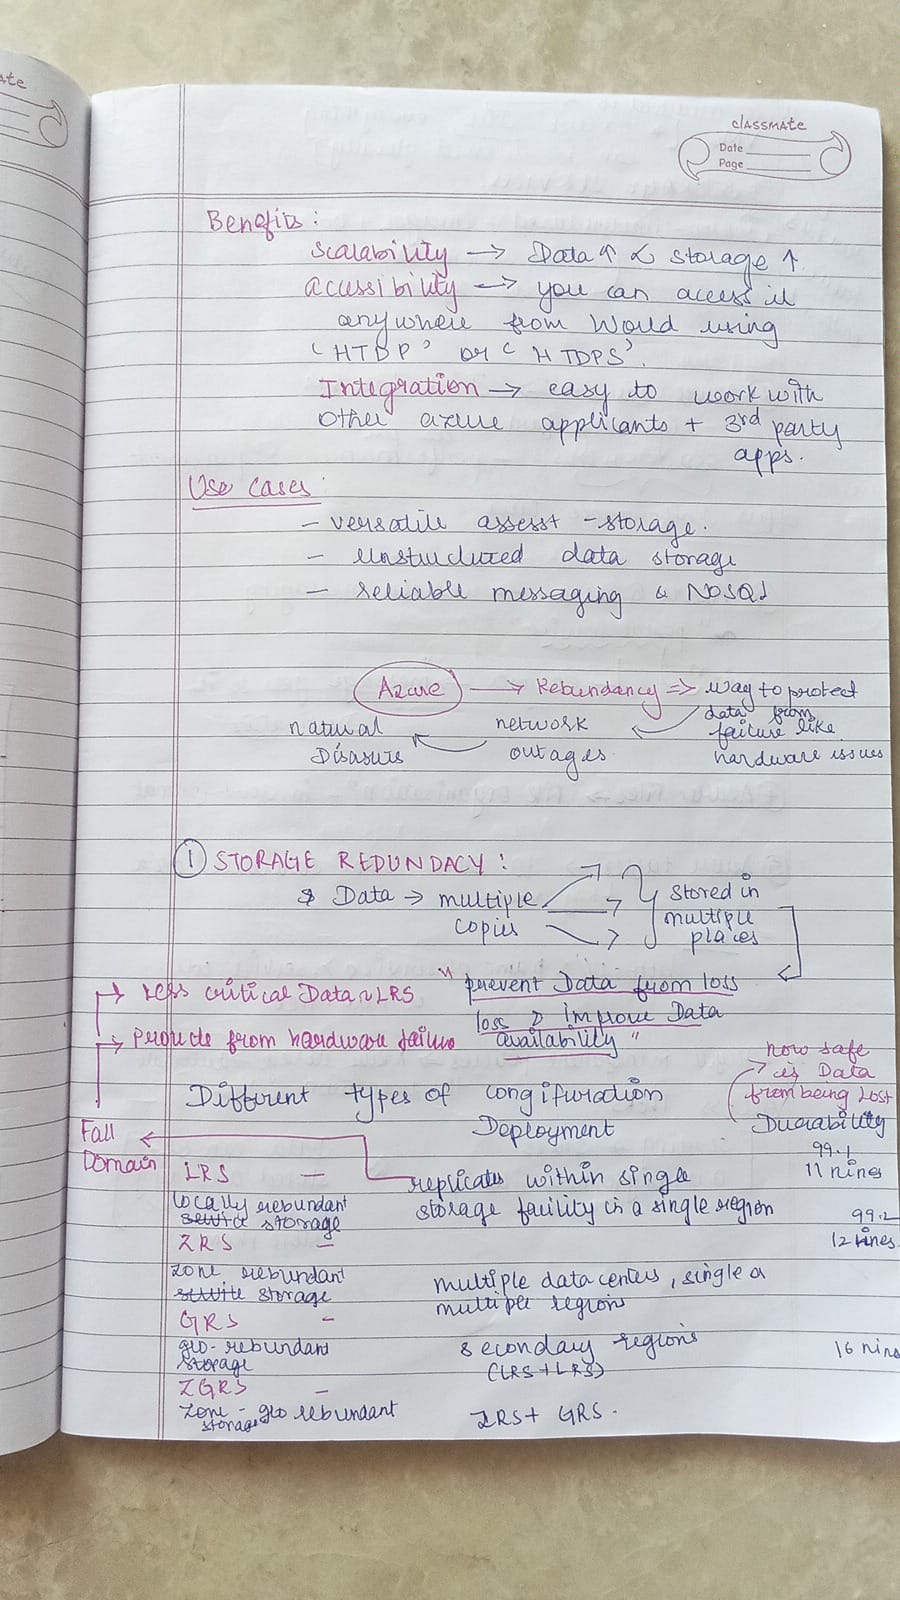 ate
classmate
Date
Page
Benefits:
Scalability → Data ↑ & storage ↑
accessibility → you can access it
anywhere from World using
'HTTP' or 'HTTPS'.
Integration → easy to work with
other azure applicants + 3rd party
apps.
Use cases:
- versatile assest - storage.
- Unstructured data storage
- reliable messaging & NOSQL
Azure → Redundancy ⇒ way to protect
data from
failure like
hardware issues
network
outages
natural
Disasure
① STORAGE REDUNDACY:
Data → multiple
copies
stored in
multiple
places
"prevent Data from loss
loss & improve Data
availability"
→ Less critical Data ~ LRS
→ Provide from hardware failure
Different types of congifuration
Deployment
how safe
is Data
from being Lost
Durability
Fall
Domain
LRS - replicates within single
storage facility in a single region
99.1
11 nines
locally redundant
storage
ZRS -
99.2
12 nines
zone redundant
storage
multiple data centers, single a
multiple regions
GRS -
geo-redundant
storage
secondary regions
(LRS + LRS)
16 nins
ZGRS -
zone-geo redundant
storage
ZRS + GRS.